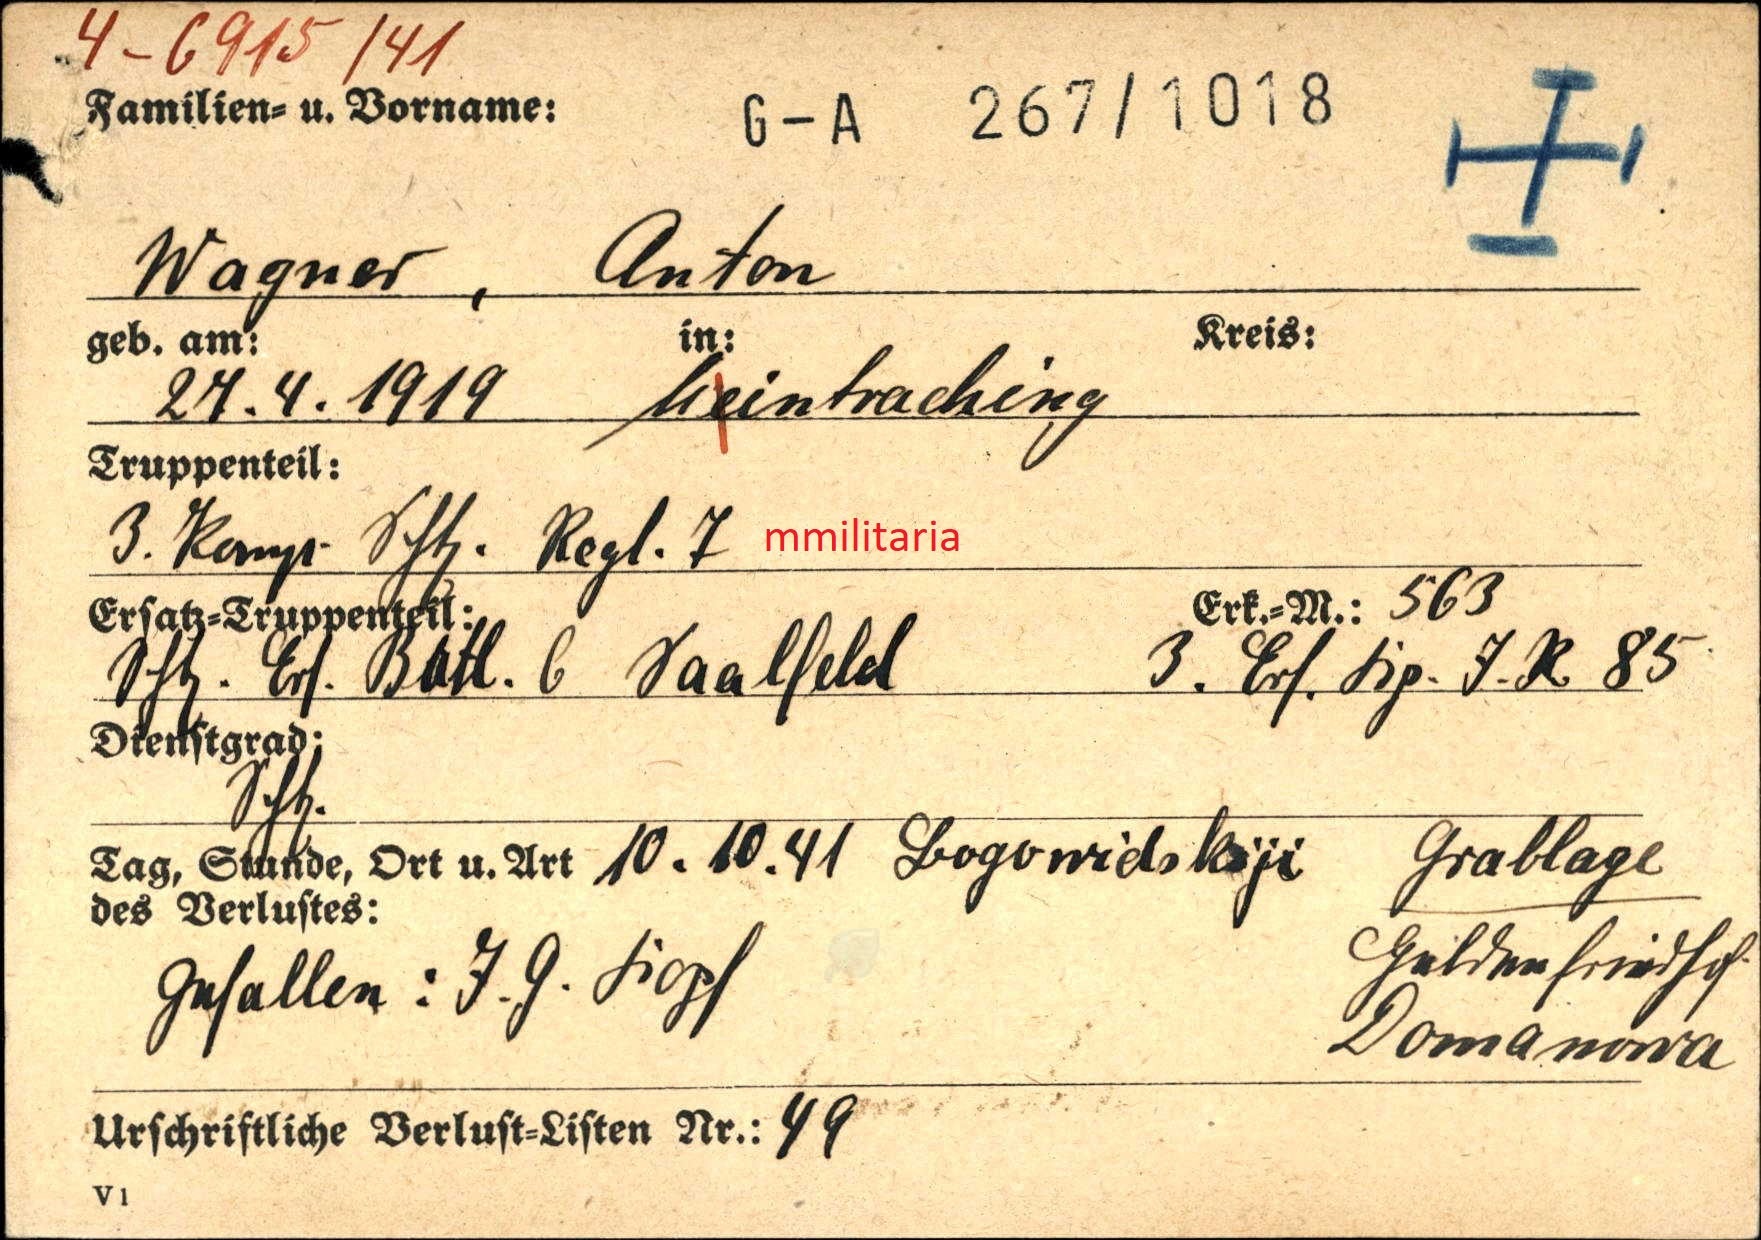 4-6915/41
Familien- u. Vorname:
G-A 267/1018
Wagner, Anton
geb. am: in: Kreis:
27.4.1919 Meintraching
Truppenteil:
3. Komp. Schtz. Regt. 7
mmilitaria
Ersatz-Truppenteil: Erk.-M.: 563
Schtz. Ers. Batl. 6 Saalfeld 3. Ers. Kp. I.R 85
Dienstgrad:
Schtz.
Tag, Stunde, Ort u. Art 10.10.41 Bogowidskiji Grablage
des Verlustes:
Gefallen: I.G. Kopf Heldenfriedhof
Domanowa
Urschriftliche Verlust-Listen Nr.: 49
V 1